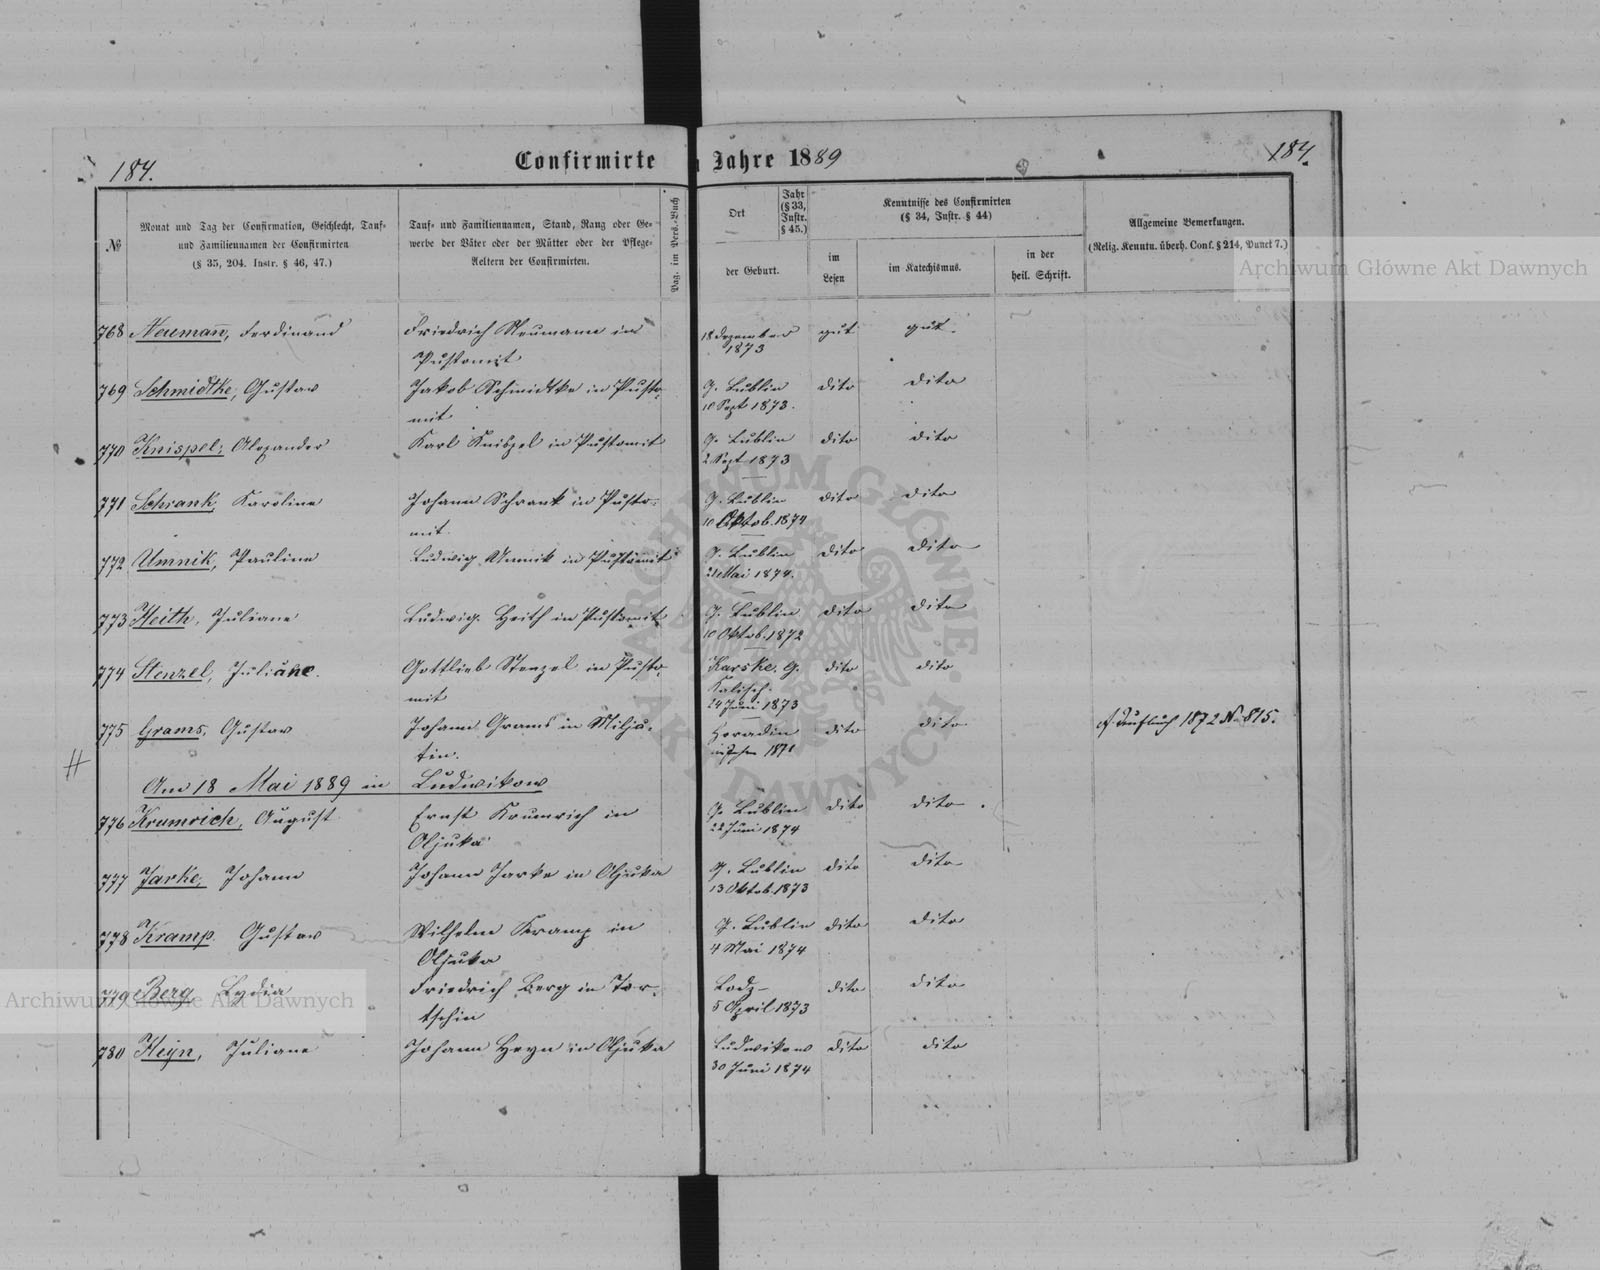 184.
Confirmirte
Jahre 1889
184.
№
Monat und Tag der Confirmation, Geschlecht, Tauf-
und Familiennamen der Confirmirten
(§ 35, 204. Instr. § 46, 47.)
Tauf- und Familiennamen, Stand, Rang oder Ge-
werbe der Väter oder der Mütter oder der Pflege-
Aeltern der Confirmirten.
Pag. im Pers.-Buch
Ort
Jahr
(§ 33,
Instr.
§ 45.)
der Geburt.
Kenntnisse des Confirmirten
(§ 34, Instr. § 44)
im
Lesen
im Katechismus.
in der
heil. Schrift.
Allgemeine Bemerkungen.
(Relig. Kenntn. überh. Conf. § 214, Punct 7.)
768 Neumañ, Ferdinand
Friedrich Neumann in
Pustomit
18 Dezember
1873
gut
gut.
769 Schmidtke, Gustav
Jakob Schmidtke in Pusto-
mit
G. Lublin
10 Sept 1873.
dito
dito
770 Knispel, Alexander
Karl Knispel in Pustomit
G. Lublin
2 Sept 1873
dito
dito
771 Schrank, Karoline
Johann Schrank in Pusto-
mit.
G. Lublin
10 Oktob. 1874
dito
dito
772 Umnik, Pauline
Ludwig Umnik in Pustomit
G. Lublin
21 Mai 1874.
dito
dito
773 Heith, Juliane
Ludwig Heith in Pustomit
G. Lublin
10 Oktob. 1872
dito
dito
774 Stenzel, Juliane.
Gottlieb Stenzel in Pusto-
mit
Karske. G.
Kalisch.
24 Juni 1873
dito
dito
775 Grams, Gustav
Johann Grams in Milja-
tin.
Horadin
1871
dito
dito
Taufbuch 1872 N 815.
Am 18 Mai 1889 in Ludwikow
776 Krumrich, August
Ernst Krumrich in
Oljuka
G. Lublin
22 Juni 1874
dito
dito.
777 Jarke, Johann
Johann Jarke in Oljuka
G. Lublin
13 Oktob. 1873
dito
dito
778 Kramp. Gustav
Wilhelm Kramp in
Oljuka
G. Lublin
4 Mai 1874
dito
dito
779 Berg, Lydia
Friedrich Berg in Tor-
tschin
Lodz
5 April 1873
dito
dito
780 Heyn, Juliane
Johann Heyn in Oljuka
Ludwikow
30 Juni 1874
dito
dito
Archiwum Główne Akt Dawnych
Archiwum Główne Akt Dawnych
ARCHIWUM GŁÓWNE AKT DAWNYCH